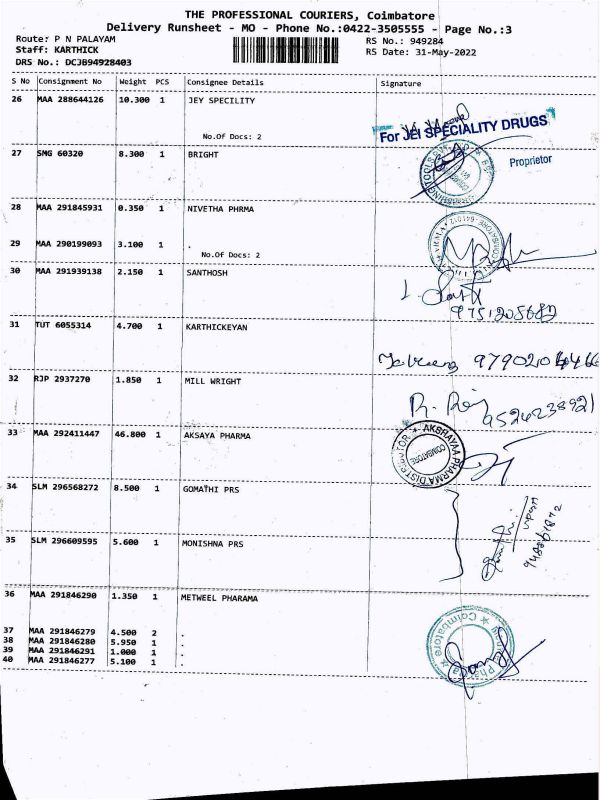 THE PROFESSIONAL COURIERS, Coimbatore
Delivery Runsheet - MO - Phone No.:0422-3505555 - Page No.:3
Route: P N PALAYAM RS No.: 949284
Staff: KARTHICK RS Date: 31-May-2022
DRS No.: DCJB94928403
S No Consignment No Weight PCS Consignee Details Signature
26 MAA 288644126 10.300 1 JEY SPECILITY
No.Of Docs: 2
For JEI SPECIALITY DRUGS
Proprietor
27 SMG 60320 8.300 1 BRIGHT
28 MAA 291845931 0.350 1 NIVETHA PHRMA
29 MAA 290199093 3.100 1 .
No.Of Docs: 2
30 MAA 291939138 2.150 1 SANTHOSH
9751205682
31 TUT 6055314 4.700 1 KARTHICKEYAN
32 RJP 2937270 1.850 1 MILL WRIGHT
9524238921
33 MAA 292411447 46.800 1 AKSAYA PHARMA
AKSHAYAA PHARMA DISTRIBUTOR
COIMBATORE
34 SLM 296568272 8.500 1 GOMATHI PRS
35 SLM 296609595 5.600 1 MONISHNA PRS
36 MAA 291846290 1.350 1 METWEEL PHARAMA
37 MAA 291846279 4.500 2 .
38 MAA 291846280 5.950 1 .
39 MAA 291846291 1.000 1 .
40 MAA 291846277 5.100 1 .
Coimbatore